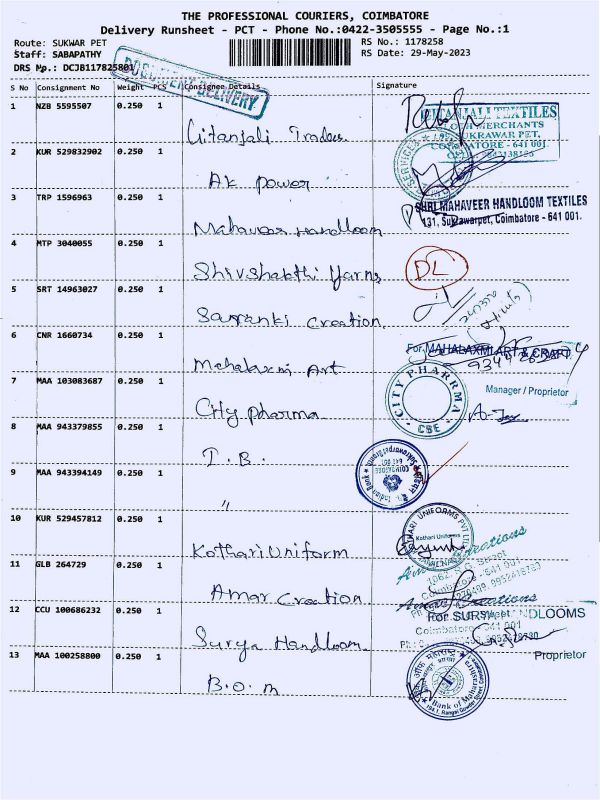 THE PROFESSIONAL COURIERS, COIMBATORE
Delivery Runsheet - PCT - Phone No.:0422-3505555 - Page No.:1
Route: SUKWAR PET
RS No.: 1178258
Staff: SABAPATHY
RS Date: 29-May-2023
DRS No.: DCJB117825801
DOCUMENT DELIVERY
S No Consignment No Weight PCS Consignee Details Signature
1 NZB 5595507 0.250 1 Gitanjali Traders
GITANJALI TEXTILES
CLOTH MERCHANTS
SUKRAWAR PET,
COIMBATORE - 641 001
2 KUR 529832902 0.250 1 AK power
3 TRP 1596963 0.250 1 Mahaveer Handloom
SHRI MAHAVEER HANDLOOM TEXTILES
131, Sukrawarpet, Coimbatore - 641 001.
4 MTP 3040055 0.250 1 Shivshakthi Yarns
DL
5 SRT 14963027 0.250 1 Creation
6 CNR 1660734 0.250 1 Mahalaxmi Art
For MAHALAXMI ART & CRAFT
Manager / Proprietor
7 MAA 103083687 0.250 1 City pharma
CITY PHARRMA
CBE
8 MAA 943379855 0.250 1 I.B.
Indian Bank
COIMBATORE
641 001
9 MAA 943394149 0.250 1 "
10 KUR 529457812 0.250 1 Kothari Uniform
KOTHARI UNIFORMS PVT LTD
Kothari Uniforms
11 GLB 264729 0.250 1 Amar Creation
Amar Creations
Coimbatore - 641 001
Amar Creations
12 CCU 100686232 0.250 1 Surya Handloom
For SURYA HANDLOOMS
Coimbatore - 641 001
Proprietor
13 MAA 100258800 0.250 1 B.O.M
Bank of Maharashtra